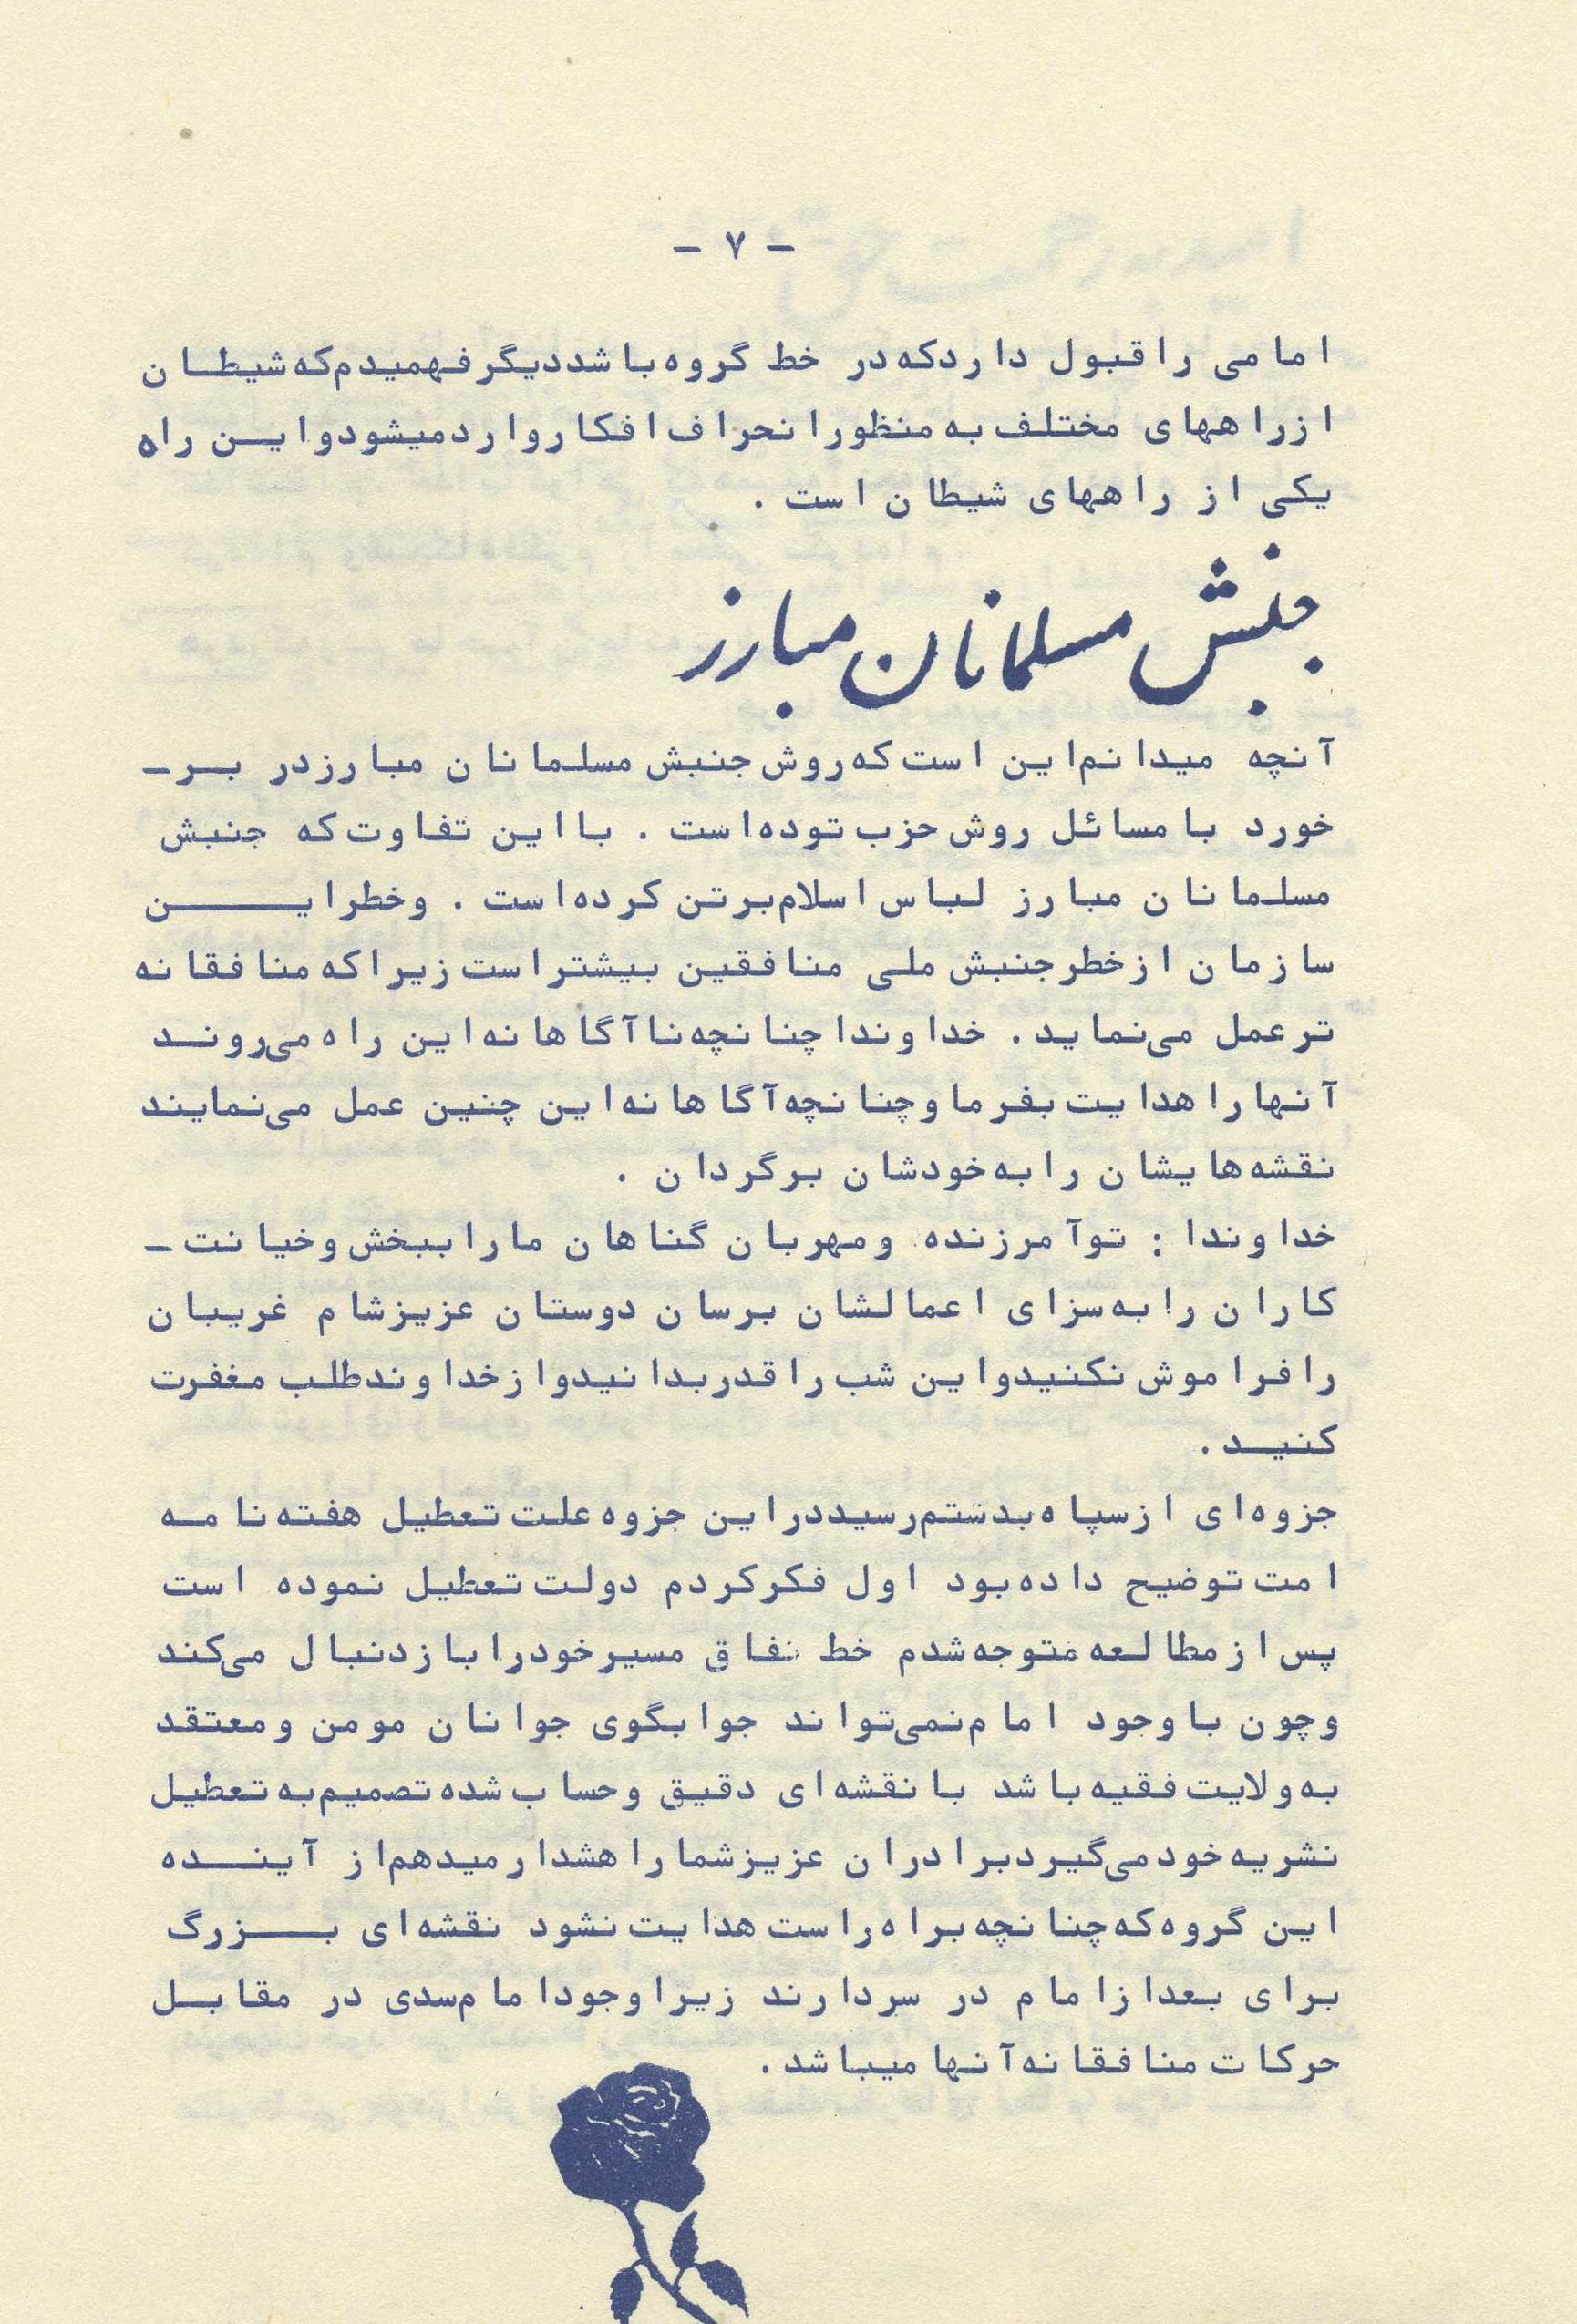 - ۷ -
امامی را قبول دارد که در خط گروه باشد دیگر فهمیدم که شیطان
از راههای مختلف به منظور انحراف افکار وارد میشود و این راه
یکی از راههای شیطان است .
جنبش مسلمانان مبارز
آنچه میدانم این است که روش جنبش مسلمانان مبارز در بر-
خورد با مسائل روش حزب توده است . با این تفاوت که جنبش
مسلمانان مبارز لباس اسلام برتن کرده است . و خطر این
سازمان از خطر جنبش ملی منافقین بیشتر است زیرا که منافقانه
تر عمل می‌نماید . خداوندا چنانچه ناآگاهانه این راه می‌روند
آنها را هدایت بفرما و چنانچه آگاهانه این چنین عمل می‌نمایند
نقشه‌هایشان را به خودشان برگردان .
خداوندا : تو آمرزنده و مهربان گناهان ما را ببخش و خیانت -
کاران را به سزای اعمالشان برسان دوستان عزیز شام غریبان
را فراموش نکنید و این شب را قدر بدانید و از خداوند طلب مغفرت
کنید .
جزوه‌ای از سپاه بدستم رسید در این جزوه علت تعطیل هفته نامه
امت توضیح داده بود اول فکر کردم دولت تعطیل نموده است
پس از مطالعه متوجه شدم خط نفاق مسیر خود را باز دنبال می‌کند
و چون با وجود امام نمی‌تواند جوابگوی جوانان مومن و معتقد
به ولایت فقیه باشد با نقشه‌ای دقیق و حساب شده تصمیم به تعطیل
نشریه خود می‌گیرد برادران عزیز شما را هشدار میدهم از آینده
این گروه که چنانچه براه راست هدایت نشود نقشه‌ای بزرگ
برای بعد از امام در سر دارند زیرا وجود امام سدی در مقابل
حرکات منافقانه آنها میباشد .